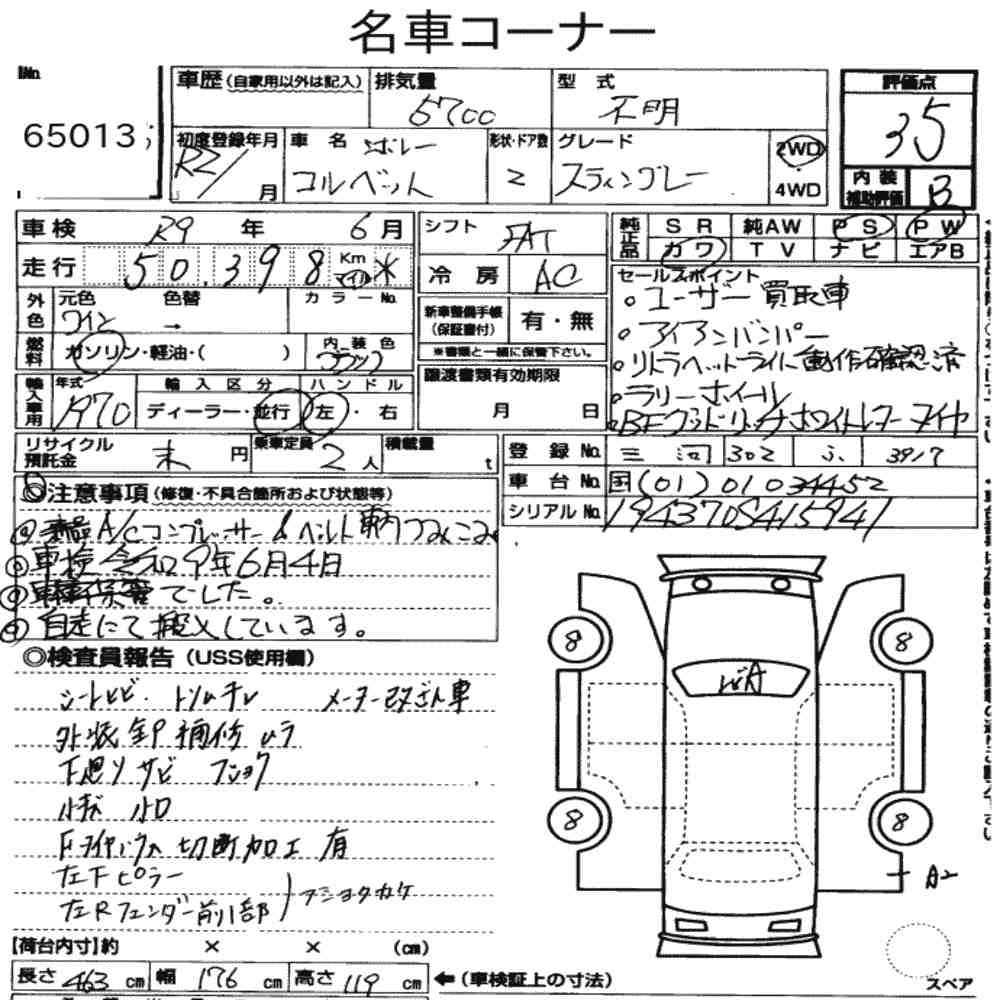 名車コーナー
No.
65013
車歴（自家用以外は記入）
排気量
5700
型 式
不明
評価点
35
初度登録年月
R2/ 月
車 名 シボレー
コルベット
形状・ドア数
2
グレード
スティングレー
2WD
4WD
内装補助評価
B
車検 R9 年 6月
走行 50,398 Km マイル *
外色
元色 色替 カラーNo.
ワイン →
燃料 ガソリン・軽油・（ ）
内装色
ブラック
輸入車用
年式
1970
輸入区分
ディーラー・並行
ハンドル
左・右
リサイクル預託金 未 円
乗車定員 2人
積載量 t
シフト FAT
冷房 AC
新車整備手帳（保証書付） 有・無
※書類と一緒に保管下さい。
譲渡書類有効期限
月 日
純正品
SR 純AW PS PW
カワ TV ナビ エアB
セールスポイント
。ユーザー買取車
。アイアンバンパー
。リトラヘッドライト動作確認済
。ラリーホイール
。BFグッドリッチホワイトレタータイヤ
登録No. 三河 302 ふ 3917
車台No. 国(01)01034452
シリアルNo. 194370S415941
◎注意事項（修復・不具合箇所および状態等）
A/Cコンプレッサー & ベルト 車内つみこみ
車検令和9年6月4日
車庫保管でした。
自走にて搬入しています。
◎検査員報告（USS使用欄）
シートヒビ・トリムキレ メーター改ざん車
外装 キP補修ムラ
下廻りサビ フショク
小キズ 小凹
Fタイヤハウス切断加工有
左下ピラー
左Rフェンダー前側部 フショクカケ
8
8
WA
8
8
A2
スペア
【荷台内寸】約 × × （cm）
長さ 463 cm 幅 176 cm 高さ 119 cm ←（車検証上の寸法）